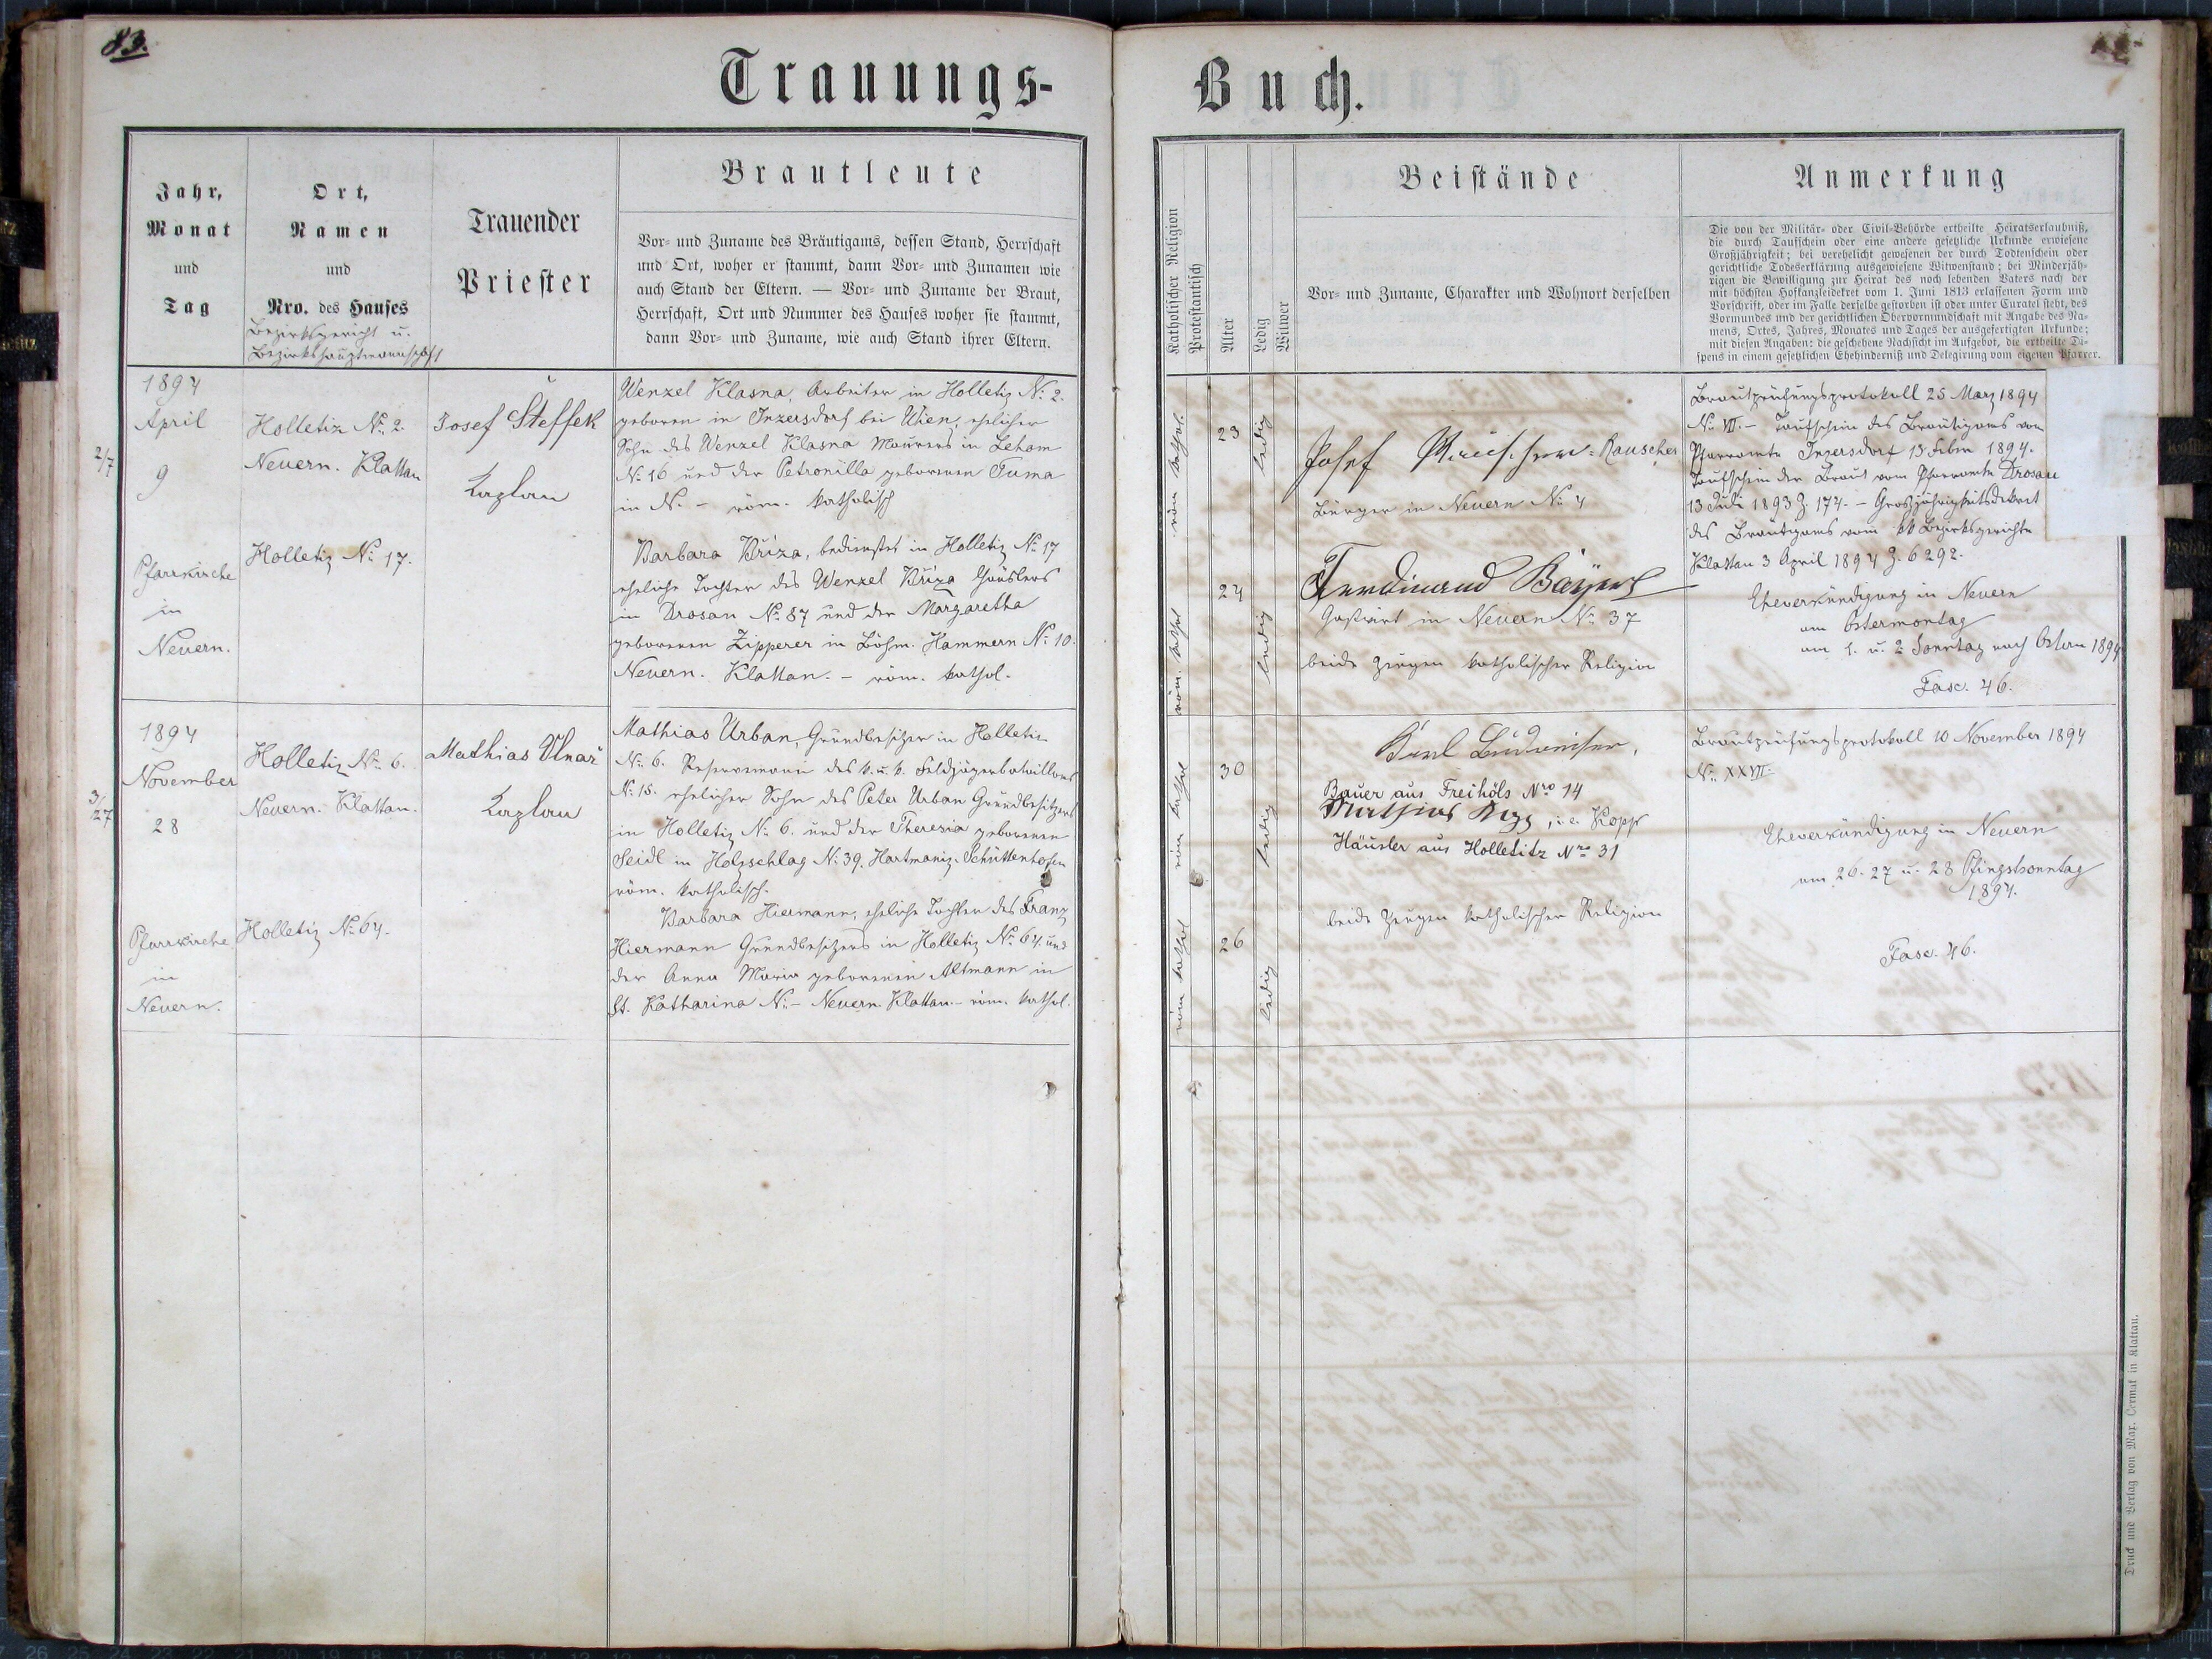 83.
Trauungs-
Buch.
Jahr,
Monat
und
Tag
Ort,
Namen
und
Nro. des Hauses
Bezirksgericht u.
Bezirkshauptmannschaft
Trauender
Priester
Brautleute
Vor- und Zuname des Bräutigams, dessen Stand, Herrschaft
und Ort, woher er stammt, dann Vor- und Zunamen wie
auch Stand der Eltern. — Vor- und Zuname der Braut,
Herrschaft, Ort und Nummer des Hauses woher sie stammt,
dann Vor- und Zuname, wie auch Stand ihrer Eltern.
Katholischer Religion
Protestantisch
Alter
Ledig
Witwer
Beistände
Vor- und Zuname, Charakter und Wohnort derselben
Anmerkung
Die von der Militär- oder Civil-Behörde ertheilte Heiratserlaubniß,
die durch Taufschein oder eine andere gesetzliche Urkunde erwiesene
Großjährigkeit; bei verehelicht gewesenen der durch Todtenschein oder
gerichtliche Todeserklärung ausgewiesene Witwenstand; bei Minderjäh-
rigen die Bewilligung zur Heirat des noch lebenden Vaters nach der
mit höchsten Hofkanzleidekret vom 1. Juni 1813 erlassenen Form und
Vorschrift, oder im Falle derselbe gestorben ist oder unter Curatel steht, des
Vormundes und der gerichtlichen Obervormundschaft mit Angabe des Na-
mens, Ortes, Jahres, Monates und Tages der ausgefertigten Urkunde;
mit diesen Angaben: die geschehene Nachsicht im Aufgebot, die ertheilte Di-
spens in einem gesetzlichen Ehehinderniß und Delegirung vom eigenen Pfarrer.
2/7
1894
April
9
Pfarrkirche
in
Neuern.
Holletiz No. 2.
Neuern. Klattau
Holletiz No. 17.
Josef Steffek
Kaplan
Wenzel Klasna, Arbeiter in Holletiz No. 2.
geboren in Inzersdorf bei Wien, ehelicher
Sohn des Wenzel Klasna Maurers in Behom
No. 16 und der Petronilla geborenen Tuma
in N. – röm. katholisch
Barbara Křiza, bedienstet in Holletiz No. 17
eheliche Tochter des Wenzel Křiza Häuslers
in Drosau No. 87 und der Margaretha
geborenen Zipperer in Böhm. Hammern No. 10.
Neuern. Klattau. – röm. kathol.
röm. kathol.
23
ledig
röm. kathol
24
ledig
Josef Rauscher Rauscher
Bürger in Neuern No. 4
Ferdinand Bayerl
Gastwirt in Neuern No. 37
beide Zeugen katholischer Religion
Brautprüfungsprotokoll 25 März 1894
No. VII. – Taufschein des Bräutigams vom
Pfarramte Inzersdorf 13 Feber 1894.
Taufschein der Braut vom Pfarramte Drosau
13 Juli 1893 Z. 174. – Großjährigkeitsdekret
des Bräutigams vom kk Bezirksgerichte
Klattau 3 April 1894 Z. 6292.
Eheverkündigung in Neuern
am Ostermontag
am 1. u. 2 Sonntag nach Ostern 1894
Fasc. 46.
3/27
1894
November
28
Pfarrkirche
in
Neuern.
Holletiz No. 6.
Neuern. Klattau.
Holletiz No. 64.
Mathias Vlnař
Kaplan
Mathias Urban, Grundbesitzer in Holletiz
No. 6. Reservemann des k. u. k. Feldjägerbataillons
No. 18. ehelicher Sohn des Peter Urban Grundbesitzers
in Holletiz No. 6. und der Theresia geborenen
Seidl in Holzschlag No. 39. Hartmaniz. Schüttenhofen
röm. katholisch.
Barbara Hiermann, eheliche Tochter des Franz
Hiermann Grundbesitzers in Holletiz No. 64. und
der Anna Maria geborenen Altmann in
St. Katharina No. – Neuern. Klattau. – röm. kathol.
röm kathol
30
ledig
röm kathol
26
ledig
Karl
Bauer aus Freihöls Nro 14
Mathias Kopp, i.e. Kopp
Häusler aus Holletitz Nro 31
beide Zeugen katholischer Religion
Brautprüfungsprotokoll 10 November 1894
No. XXVII.
Eheverkündigung in Neuern
am 26. 27 u. 28 Pfingstsonntag
1894.
Fasc. 46.
Druck und Verlag von Max. Cermak in Klattau.